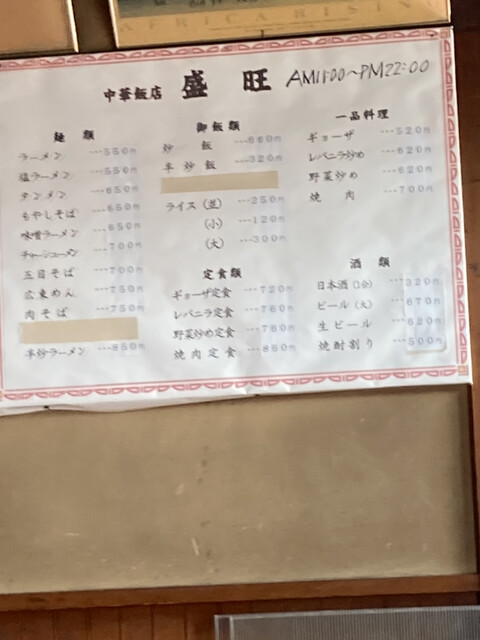 AFRICA RISIN
中華飯店 盛旺 AM11:00〜PM22:00
麺類
ラーメン …550円
塩ラーメン …550円
タンメン …650円
もやしそば …650円
味噌ラーメン …650円
チャーシューメン …700円
五目そば …700円
広東めん …750円
肉そば …750円
半炒ラーメン …850円
御飯類
炒飯 …660円
半炒飯 …320円
ライス(並) …250円
(小) …120円
(大) …300円
定食類
ギョーザ定食 …720円
レバニラ定食 …760円
野菜炒め定食 …760円
焼肉定食 …860円
一品料理
ギョーザ …520円
レバニラ炒め …620円
野菜炒め …620円
焼肉 …700円
酒類
日本酒(1合) …320円
ビール(大) …670円
生ビール …620円
焼酎割り …500円